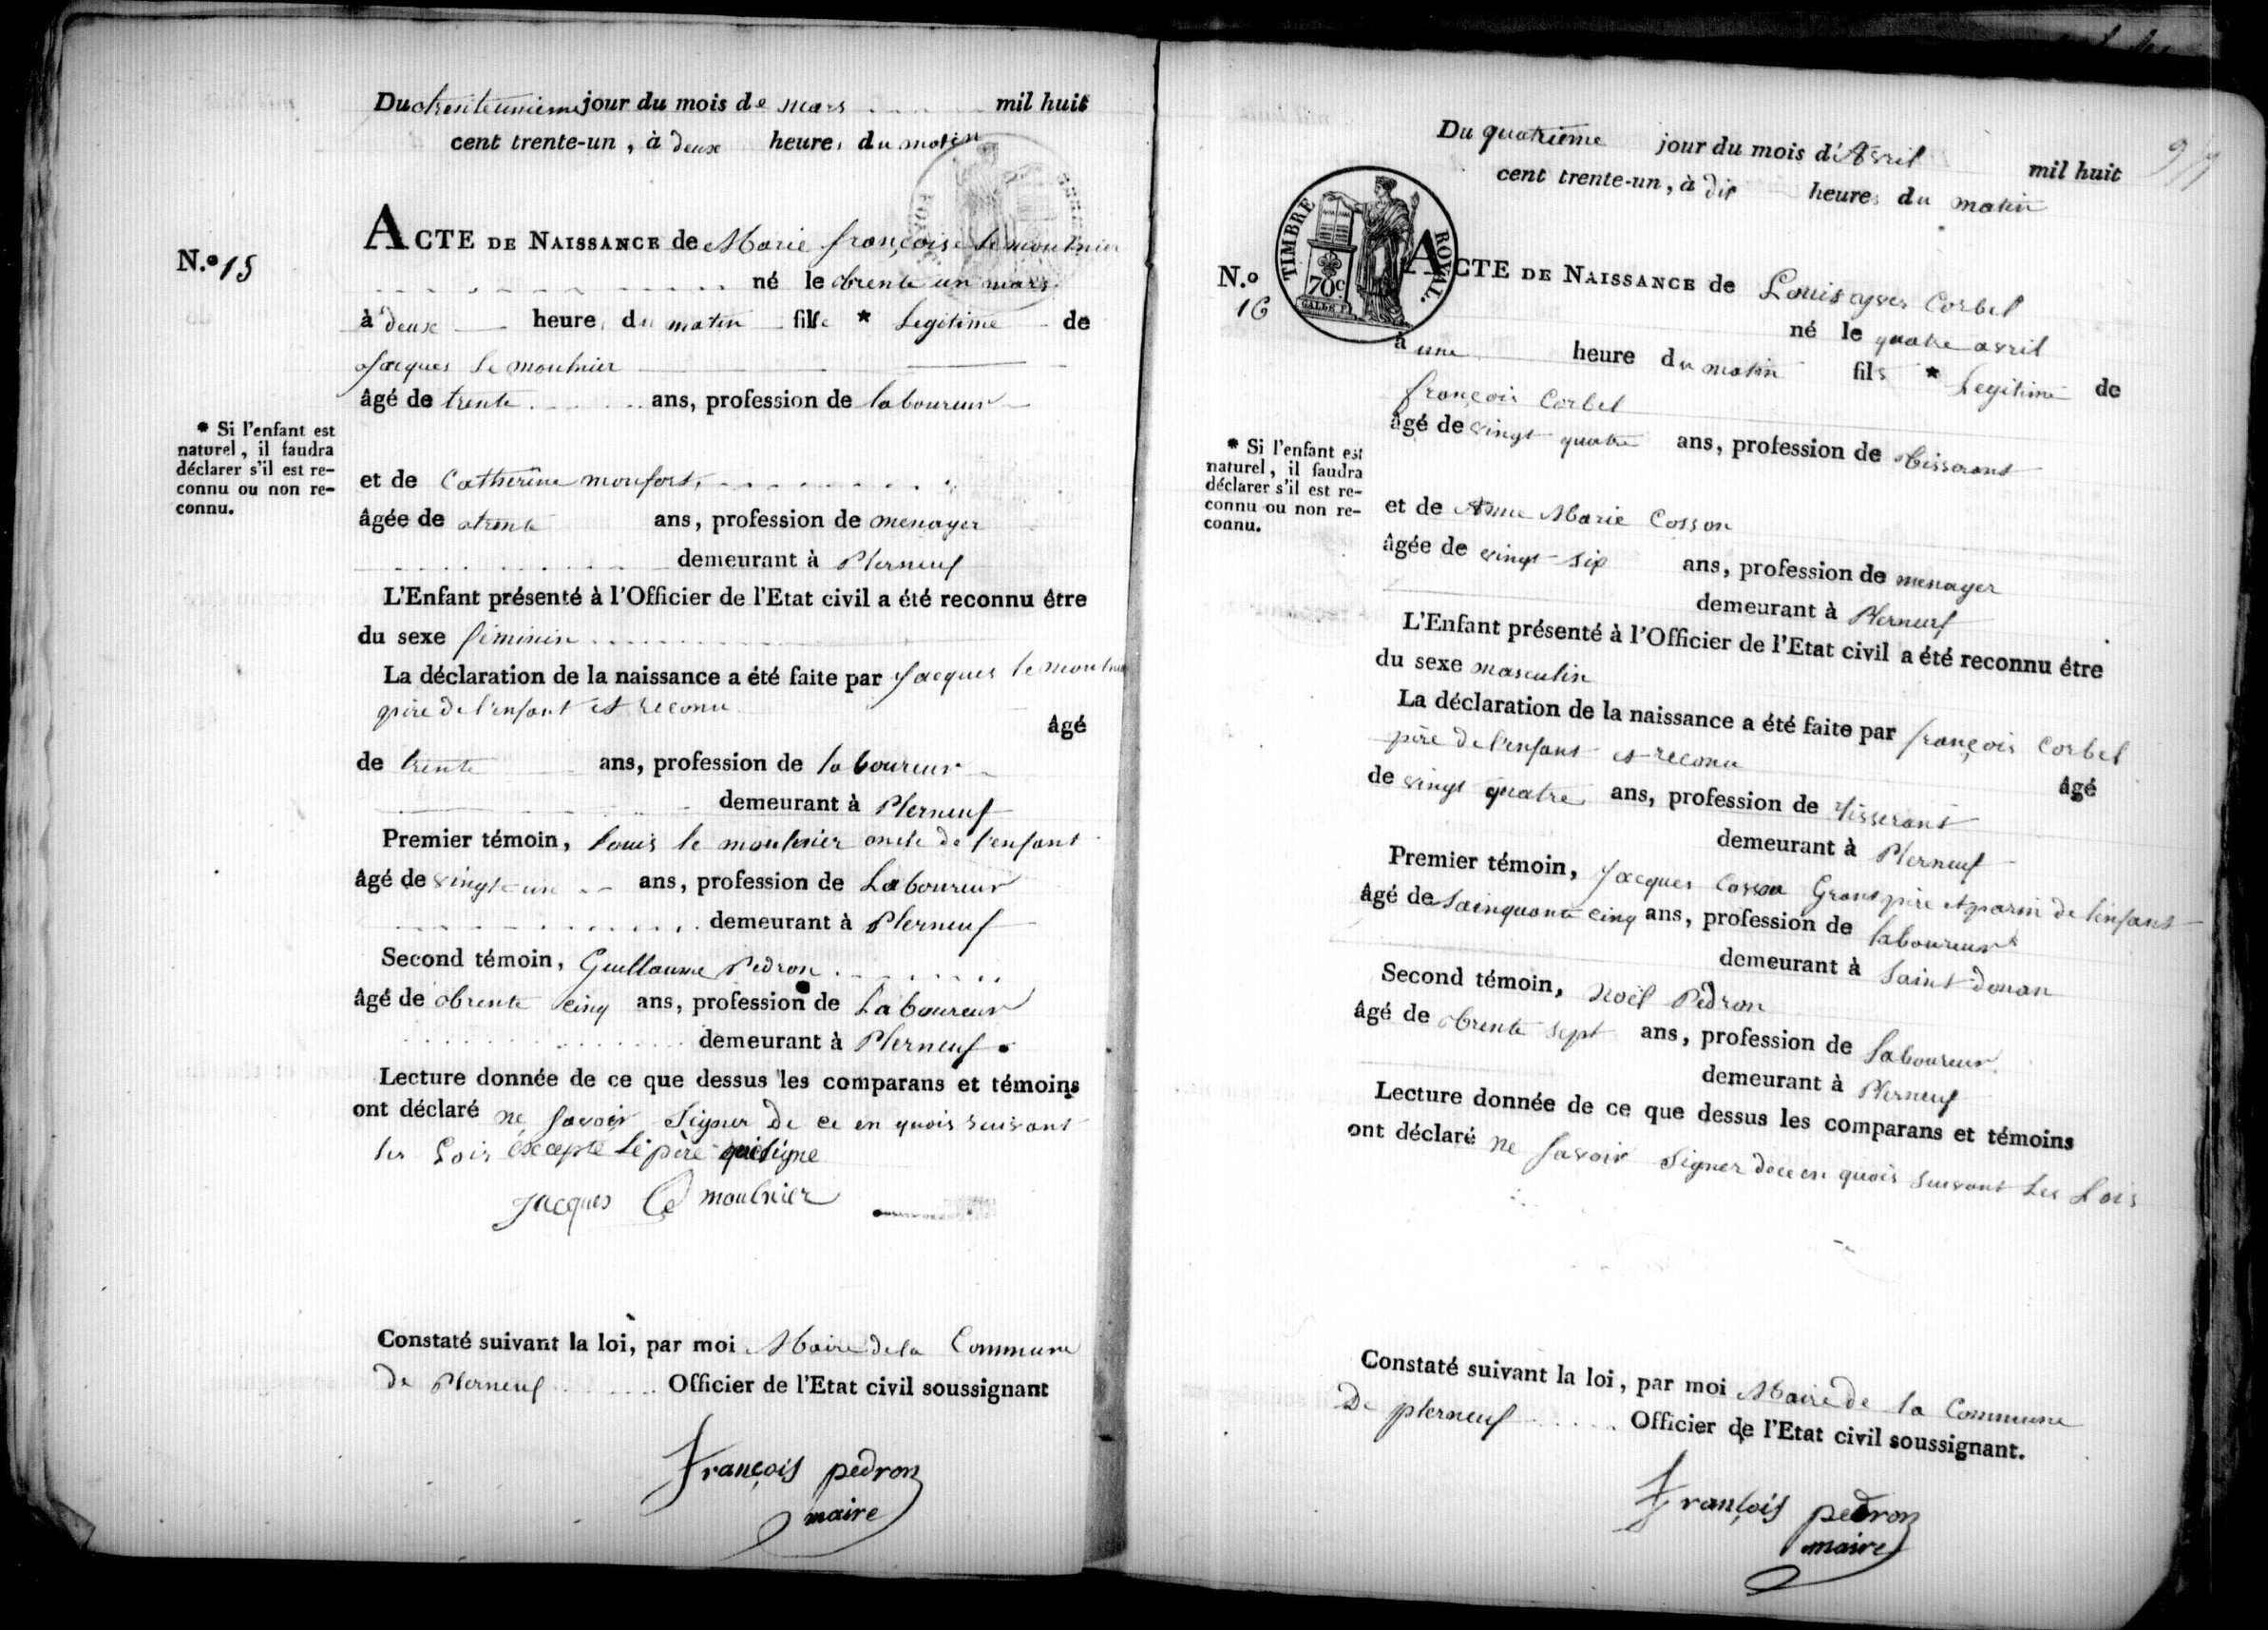 Du trente unieme jour du mois de mars mil huit
cent trente-un, à deux heures du matin
N.o 15
ACTE DE NAISSANCE de Marie françoise Le moulnier
né le trente un mars
à deux heures du matin fille * Legitime de
Jacques Le moulnier
âgé de trente ans, profession de laboureur
* Si l'enfant est
naturel, il faudra
déclarer s'il est re-
connu ou non re-
connu.
et de Catherine monfort
âgée de trente ans, profession de menager
demeurant à Plerneuf
L'Enfant présenté à l'Officier de l'Etat civil a été reconnu être
du sexe féminin
La déclaration de la naissance a été faite par Jacques le moulnier
père de l'enfant et reconu
âgé
de trente ans, profession de laboureur
demeurant à Plerneuf
Premier témoin, louis le moulnier oncle de l'enfant
âgé de vingt-un ans, profession de Laboureur
demeurant à Plerneuf
Second témoin, Guillaume Pedron
âgé de trente cinq ans, profession de Laboureur
demeurant à Plerneuf
Lecture donnée de ce que dessus les comparans et témoins
ont déclaré ne savoir Signer de ce en quois suivant
les Lois excepté le père qui signe
jacques Le moulnier
Constaté suivant la loi, par moi Maire de la Commune
de Plerneuf Officier de l'Etat civil soussignant
françois pedron
maire
Du quatrieme jour du mois d'Avril mil huit
cent trente-un, à dix heures du matin
TIMBRE ROYAL.
70c
N.o
16
ACTE DE NAISSANCE de Louis yves Corbel
né le quatre avril
à une heure du matin fils * Legitime de
françois Corbel
âgé de vingt quatre ans, profession de tisserant
* Si l'enfant est
naturel, il faudra
déclarer s'il est re-
connu ou non re-
connu.
et de Anne Marie Cosson
âgée de vingt-six ans, profession de menager
demeurant à Plerneuf
L'Enfant présenté à l'Officier de l'Etat civil a été reconnu être
du sexe masculin
La déclaration de la naissance a été faite par françois Corbel
père de l'enfant et reconu
âgé
de vingt quatre ans, profession de tisserant
demeurant à Plerneuf
Premier témoin, Jacques Cosson Grant père et parin de l'enfant
âgé de sainquante cinq ans, profession de laboureur
demeurant à Saint donan
Second témoin, Noël Pedron
âgé de trente sept ans, profession de Laboureur
demeurant à Plerneuf
Lecture donnée de ce que dessus les comparans et témoins
ont déclaré ne savoir Signer de ce en quois suivant Les Lois
Constaté suivant la loi, par moi Maire de la Commune
De plerneuf Officier de l'Etat civil soussignant.
françois pedron
maire